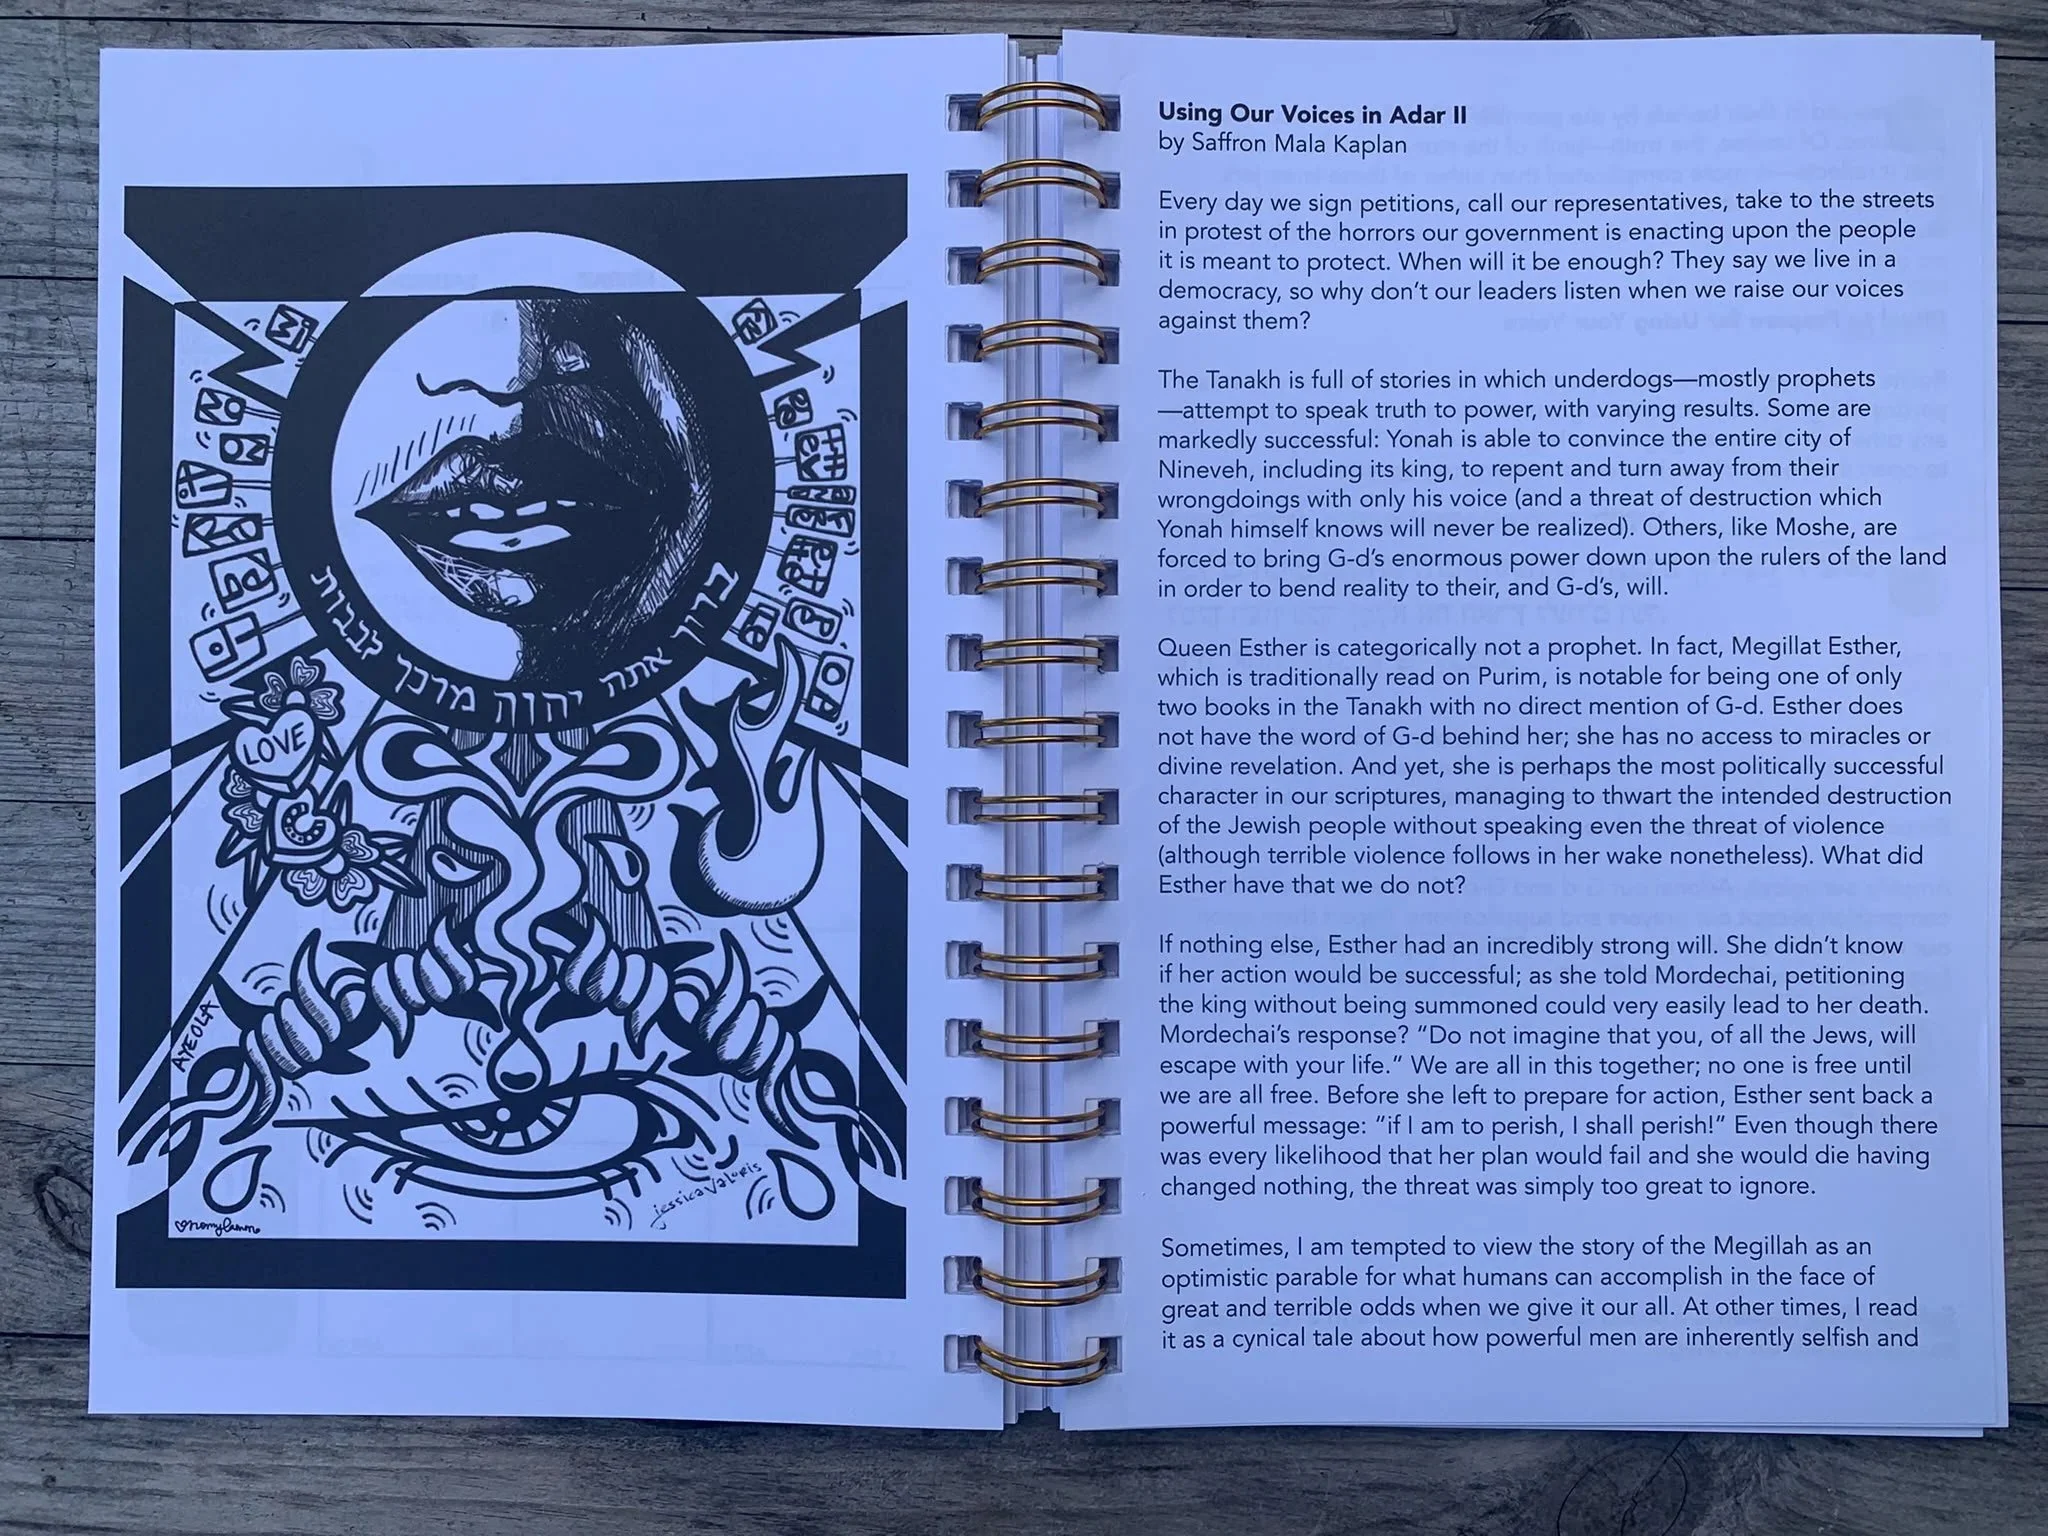 ברוך אתה יהוה מרכך לבבות
LOVE
AYEOLA
jessica Valoris
Using Our Voices in Adar II
by Saffron Mala Kaplan
Every day we sign petitions, call our representatives, take to the streets
in protest of the horrors our government is enacting upon the people
it is meant to protect. When will it be enough? They say we live in a
democracy, so why don't our leaders listen when we raise our voices
against them?
The Tanakh is full of stories in which underdogs—mostly prophets
—attempt to speak truth to power, with varying results. Some are
markedly successful: Yonah is able to convince the entire city of
Nineveh, including its king, to repent and turn away from their
wrongdoings with only his voice (and a threat of destruction which
Yonah himself knows will never be realized). Others, like Moshe, are
forced to bring G-d's enormous power down upon the rulers of the land
in order to bend reality to their, and G-d's, will.
Queen Esther is categorically not a prophet. In fact, Megillat Esther,
which is traditionally read on Purim, is notable for being one of only
two books in the Tanakh with no direct mention of G-d. Esther does
not have the word of G-d behind her; she has no access to miracles or
divine revelation. And yet, she is perhaps the most politically successful
character in our scriptures, managing to thwart the intended destruction
of the Jewish people without speaking even the threat of violence
(although terrible violence follows in her wake nonetheless). What did
Esther have that we do not?
If nothing else, Esther had an incredibly strong will. She didn't know
if her action would be successful; as she told Mordechai, petitioning
the king without being summoned could very easily lead to her death.
Mordechai's response? "Do not imagine that you, of all the Jews, will
escape with your life." We are all in this together; no one is free until
we are all free. Before she left to prepare for action, Esther sent back a
powerful message: "if I am to perish, I shall perish!" Even though there
was every likelihood that her plan would fail and she would die having
changed nothing, the threat was simply too great to ignore.
Sometimes, I am tempted to view the story of the Megillah as an
optimistic parable for what humans can accomplish in the face of
great and terrible odds when we give it our all. At other times, I read
it as a cynical tale about how powerful men are inherently selfish and